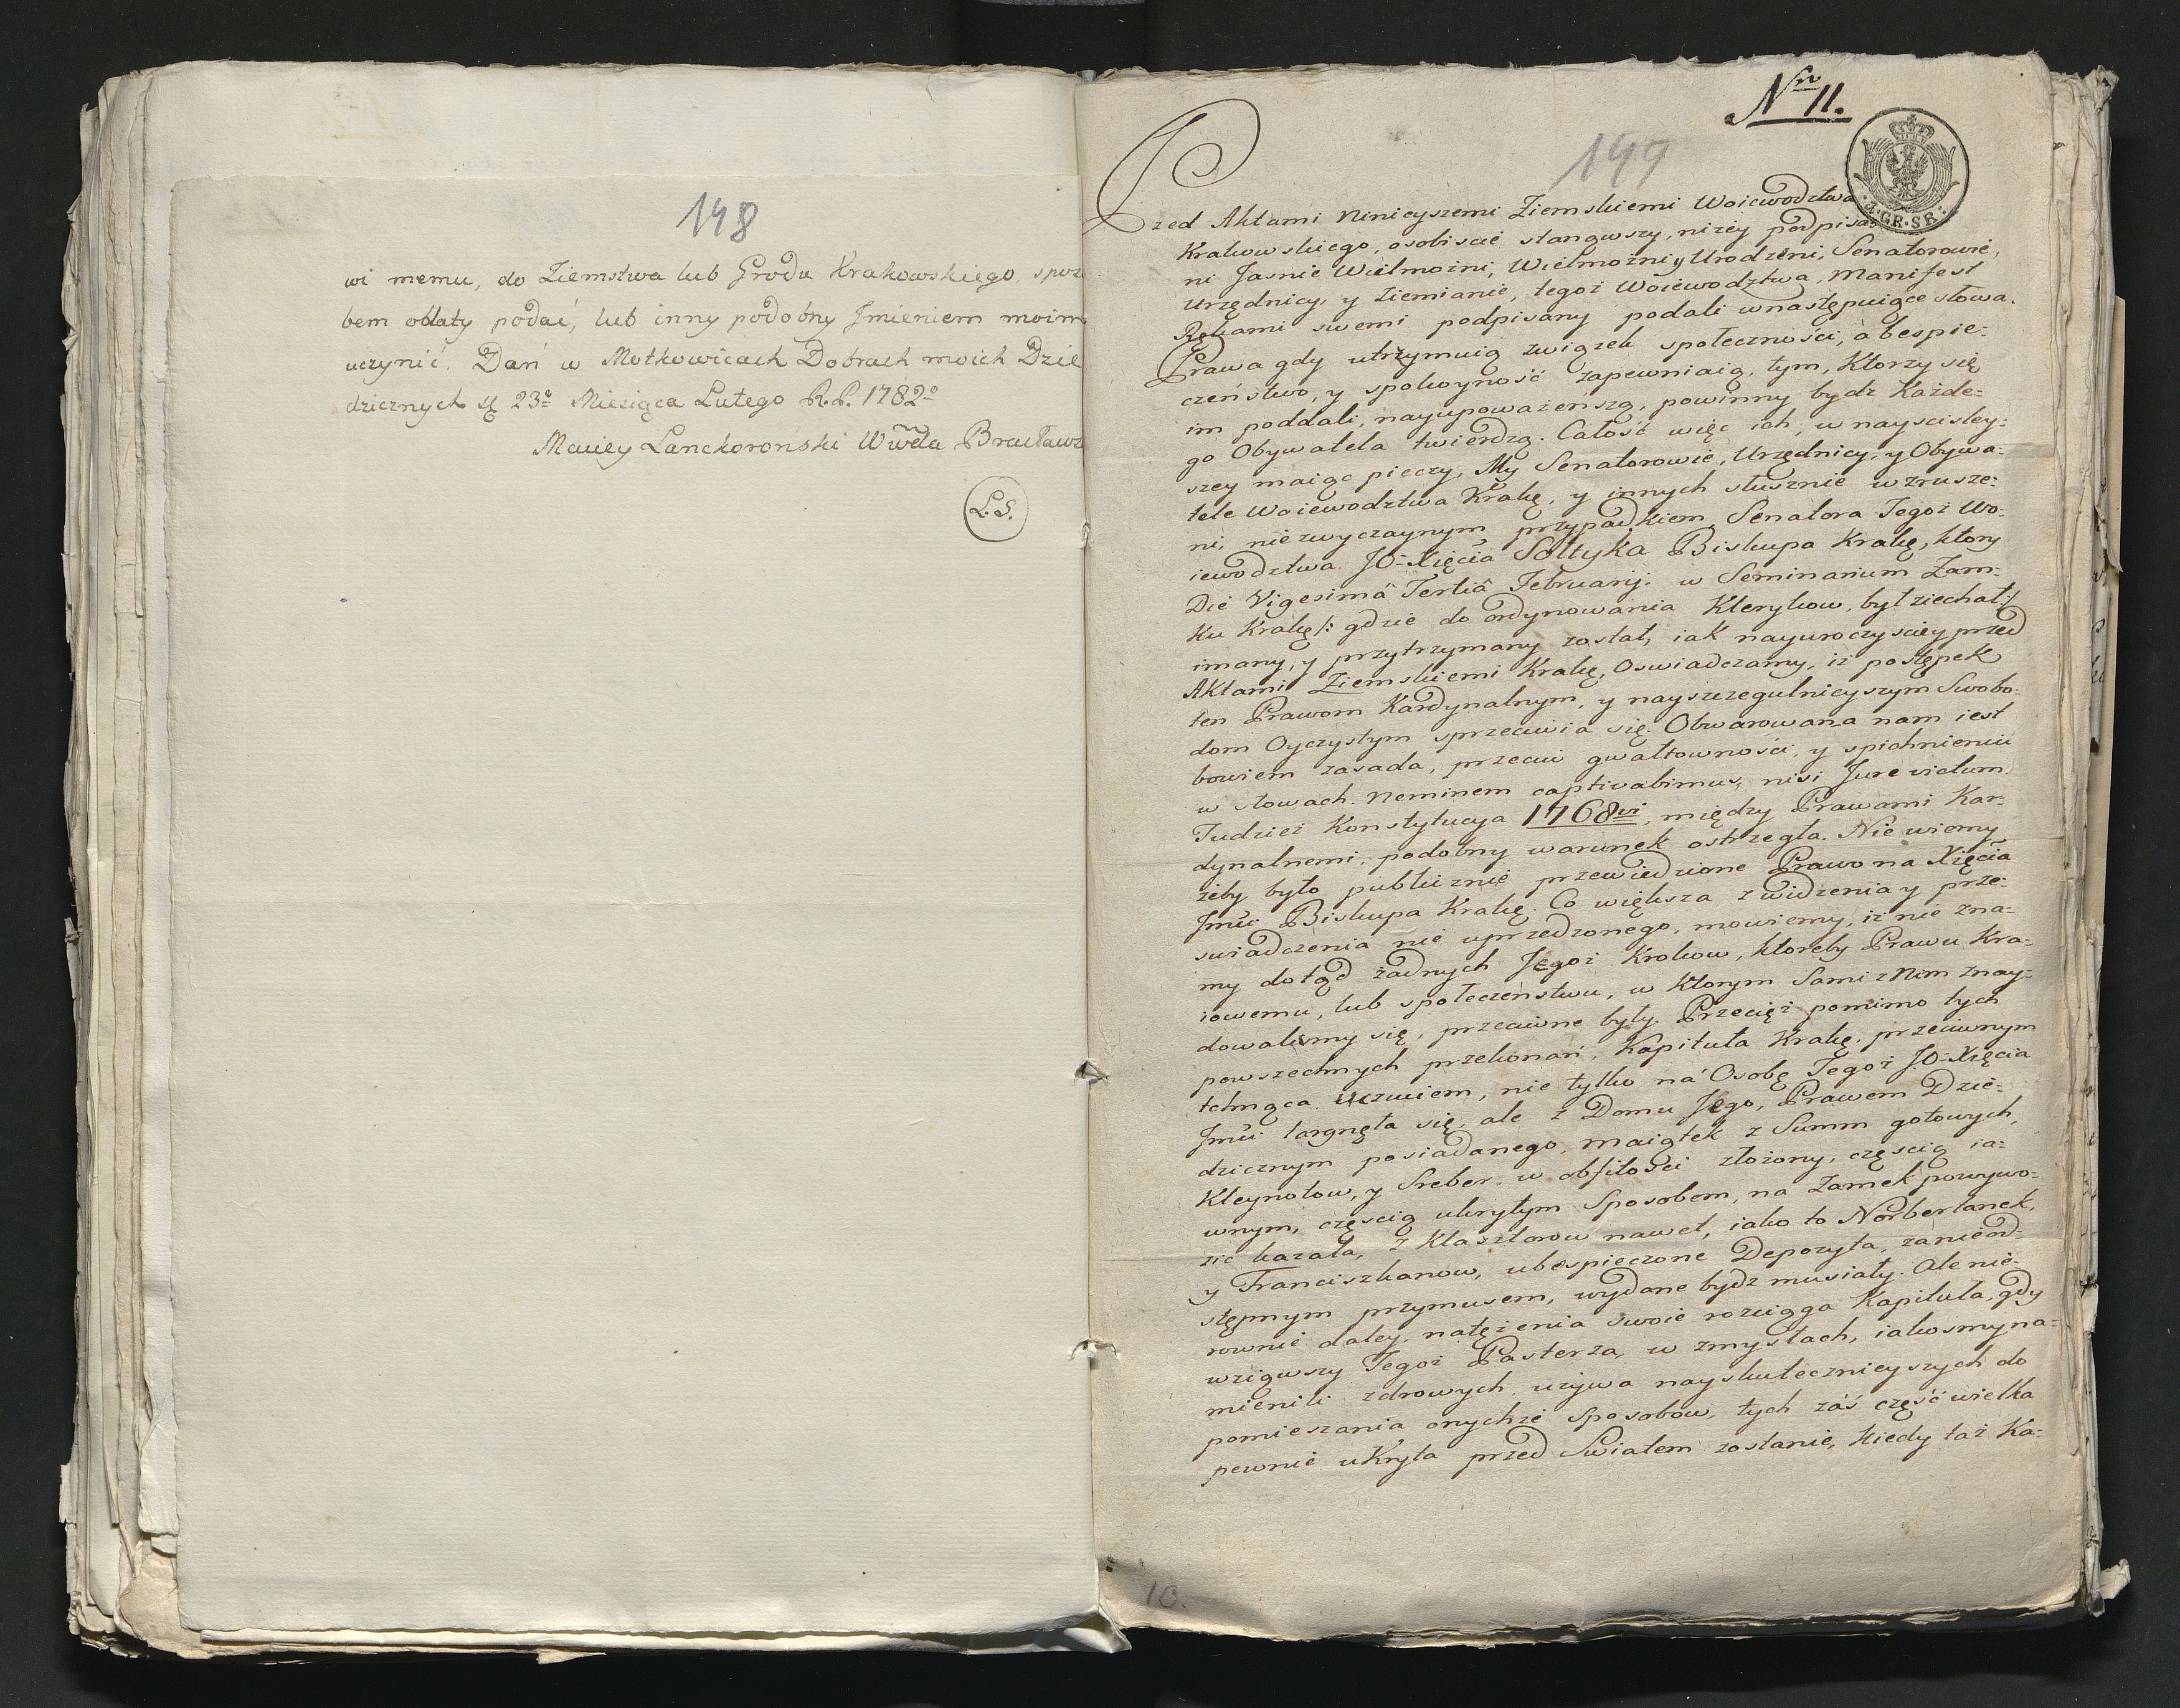 148
wi memu, do Ziemstwa lub Grodu Krakowskiego, spos
bem oblaty podać, lub inny podobny Jmieniem moim
uczynić. Dań w Motkowicach Dobrach moich Dzie
dzicznych 23º Miesiąca Lutego R.P. 1782º
Maciey Lanckoronski Wwda Bracławs
L.S.
Nr 11.
149
3 GR. SR.
Przed Aktami Ninieyszemi Ziemskiemi Woiewodztwa
Krakowskiego, osobiscie stanąwszy, niżey podpisa
ni Jasnie Wielmożni, Wielmożni y Urodzeni, Senatorowie,
Urzędnicy, y Ziemianie, tegoż Woiewodztwa, Manifest
Rękami swemi podpisany podali w następuiące słowa.
Prawa gdy utrzymuią związek społeczności, a bespie:
czeństwo, y spokoyność zapewniaią, tym, Ktorzy się
im poddali, nayupoważenszą, powinny bydz Każde=
go Obywatela twierdzą. Całość więc ich, w nayscisley:
szey maiąc pieczy, My Senatorowie, Urzędnicy, y Obywa:
tele Woiewodztwa Krakę, y innych słusznie wzrusze:
ni, niezwyczaynym przypadkiem, Senatora Tegoż Wo:
iewodztwa JO-Xięcia Sołtyka Biskupa Krakę, ktory
Die Vigesimâ Tertiâ Februarij. w Seminarium Zam:
Ku Krakę /: gdzie do ordynowania Klerykow, był ziechał:/
imany, y przytrzymany został, iak nayuroczyściey przed
Aktami Ziemskiemi Krakę, Oswiadczamy, iż postępek
ten Prawom Kardynalnym, y nayszczegulnieyszym Swobo:
dom Oyczystym sprzeciwia się. Obwarowana nam iest
bowiem zasada, przeciw gwałtowności, y spichnieniu
w słowach. Neminem captivabimus, nisi Jure victum.
Tudzież Konstytucya 1768vi, między Prawami Kar:
dynalnemi, podobny warunek ostrzegła. Nie wiemy
żeby było publicznie przewiedzione Prawo na Xięcia
Jmći Biskupa Krakę. Co większa z widzenia y prze:
swiadczenia nie uprzedzonego, mowiemy, iż nie zna:
my dotąd żadnych Jegoż Krokow, ktoreby Prawu Kra:
iowemu, lub społeczeństwu, w Ktorym Sami z Nim znay:
dowalismy się, przeciwne były. Przecięż pomimo tych
powszechnych przekonań, Kapituła Krakę, przeciwnym
tchnąca uczuciem, nie tylko na Osobę Tegoż J.O-Xięcia
Jmći targnęła się, ale z Domu Jego, Prawem Dzie:
dzicznym posiadanego, maiątek z Summ gotowych,
Kleynotow, y Sreber w obfitości złożony, częscią ia:
wnym, częscią ukrytym Sposobem, na Zamek powywo:
zić kazała, z Klasztorow nawet, iako to Norbertanek,
y Franciszkanow, ubespieczone Depozyta, zanieod:
stępnym przymusem, wydane bydz musiały. Ale nie:
rownie daley natężenia swoie rozciąga Kapituła, gdy
wziąwszy Tegoż Pasterza, w zmysłach, iakosmy na:
mienili zdrowych, używa nayskutecznieyszych do
pomieszania onychże Sposobow, tych zaś część wielka
pewnie ukryta przed Swiatem zostanie, kiedy taż Ka:
10.